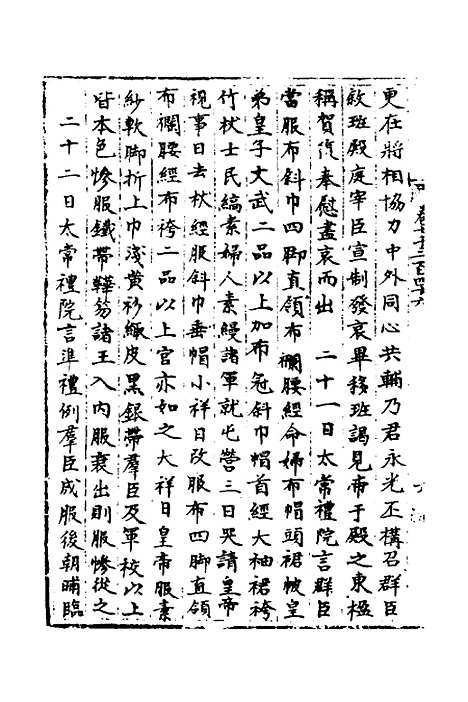 更在將相協力中外同心共輔乃君永光丕構召群臣
敘班殿庭宰臣宣制發哀畢移班謁見帝于殿之東楹
稱賀復奉慰盡哀而出　二十一日太常禮院言群臣
當服布斜巾四脚直領布襴腰絰命婦布帽頭裙帔皇
弟皇子文武二品以上加布冠斜巾帽首絰大袖裙袴
竹杖士民縞素婦人素縵諸軍就屯營三日哭請皇帝
視事日去杖絰服斜巾垂帽小祥日改服布四脚直領
布襴腰絰布袴二品以上官亦如之大祥日皇帝服素
紗軟脚折上巾淺黃衫緶皮黑銀帶羣臣及軍校以上
皆本色慘服鐵帶鞾笏諸王入內服衰出則服慘從之
二十二日太常禮院言準禮例羣臣成服後朝晡臨